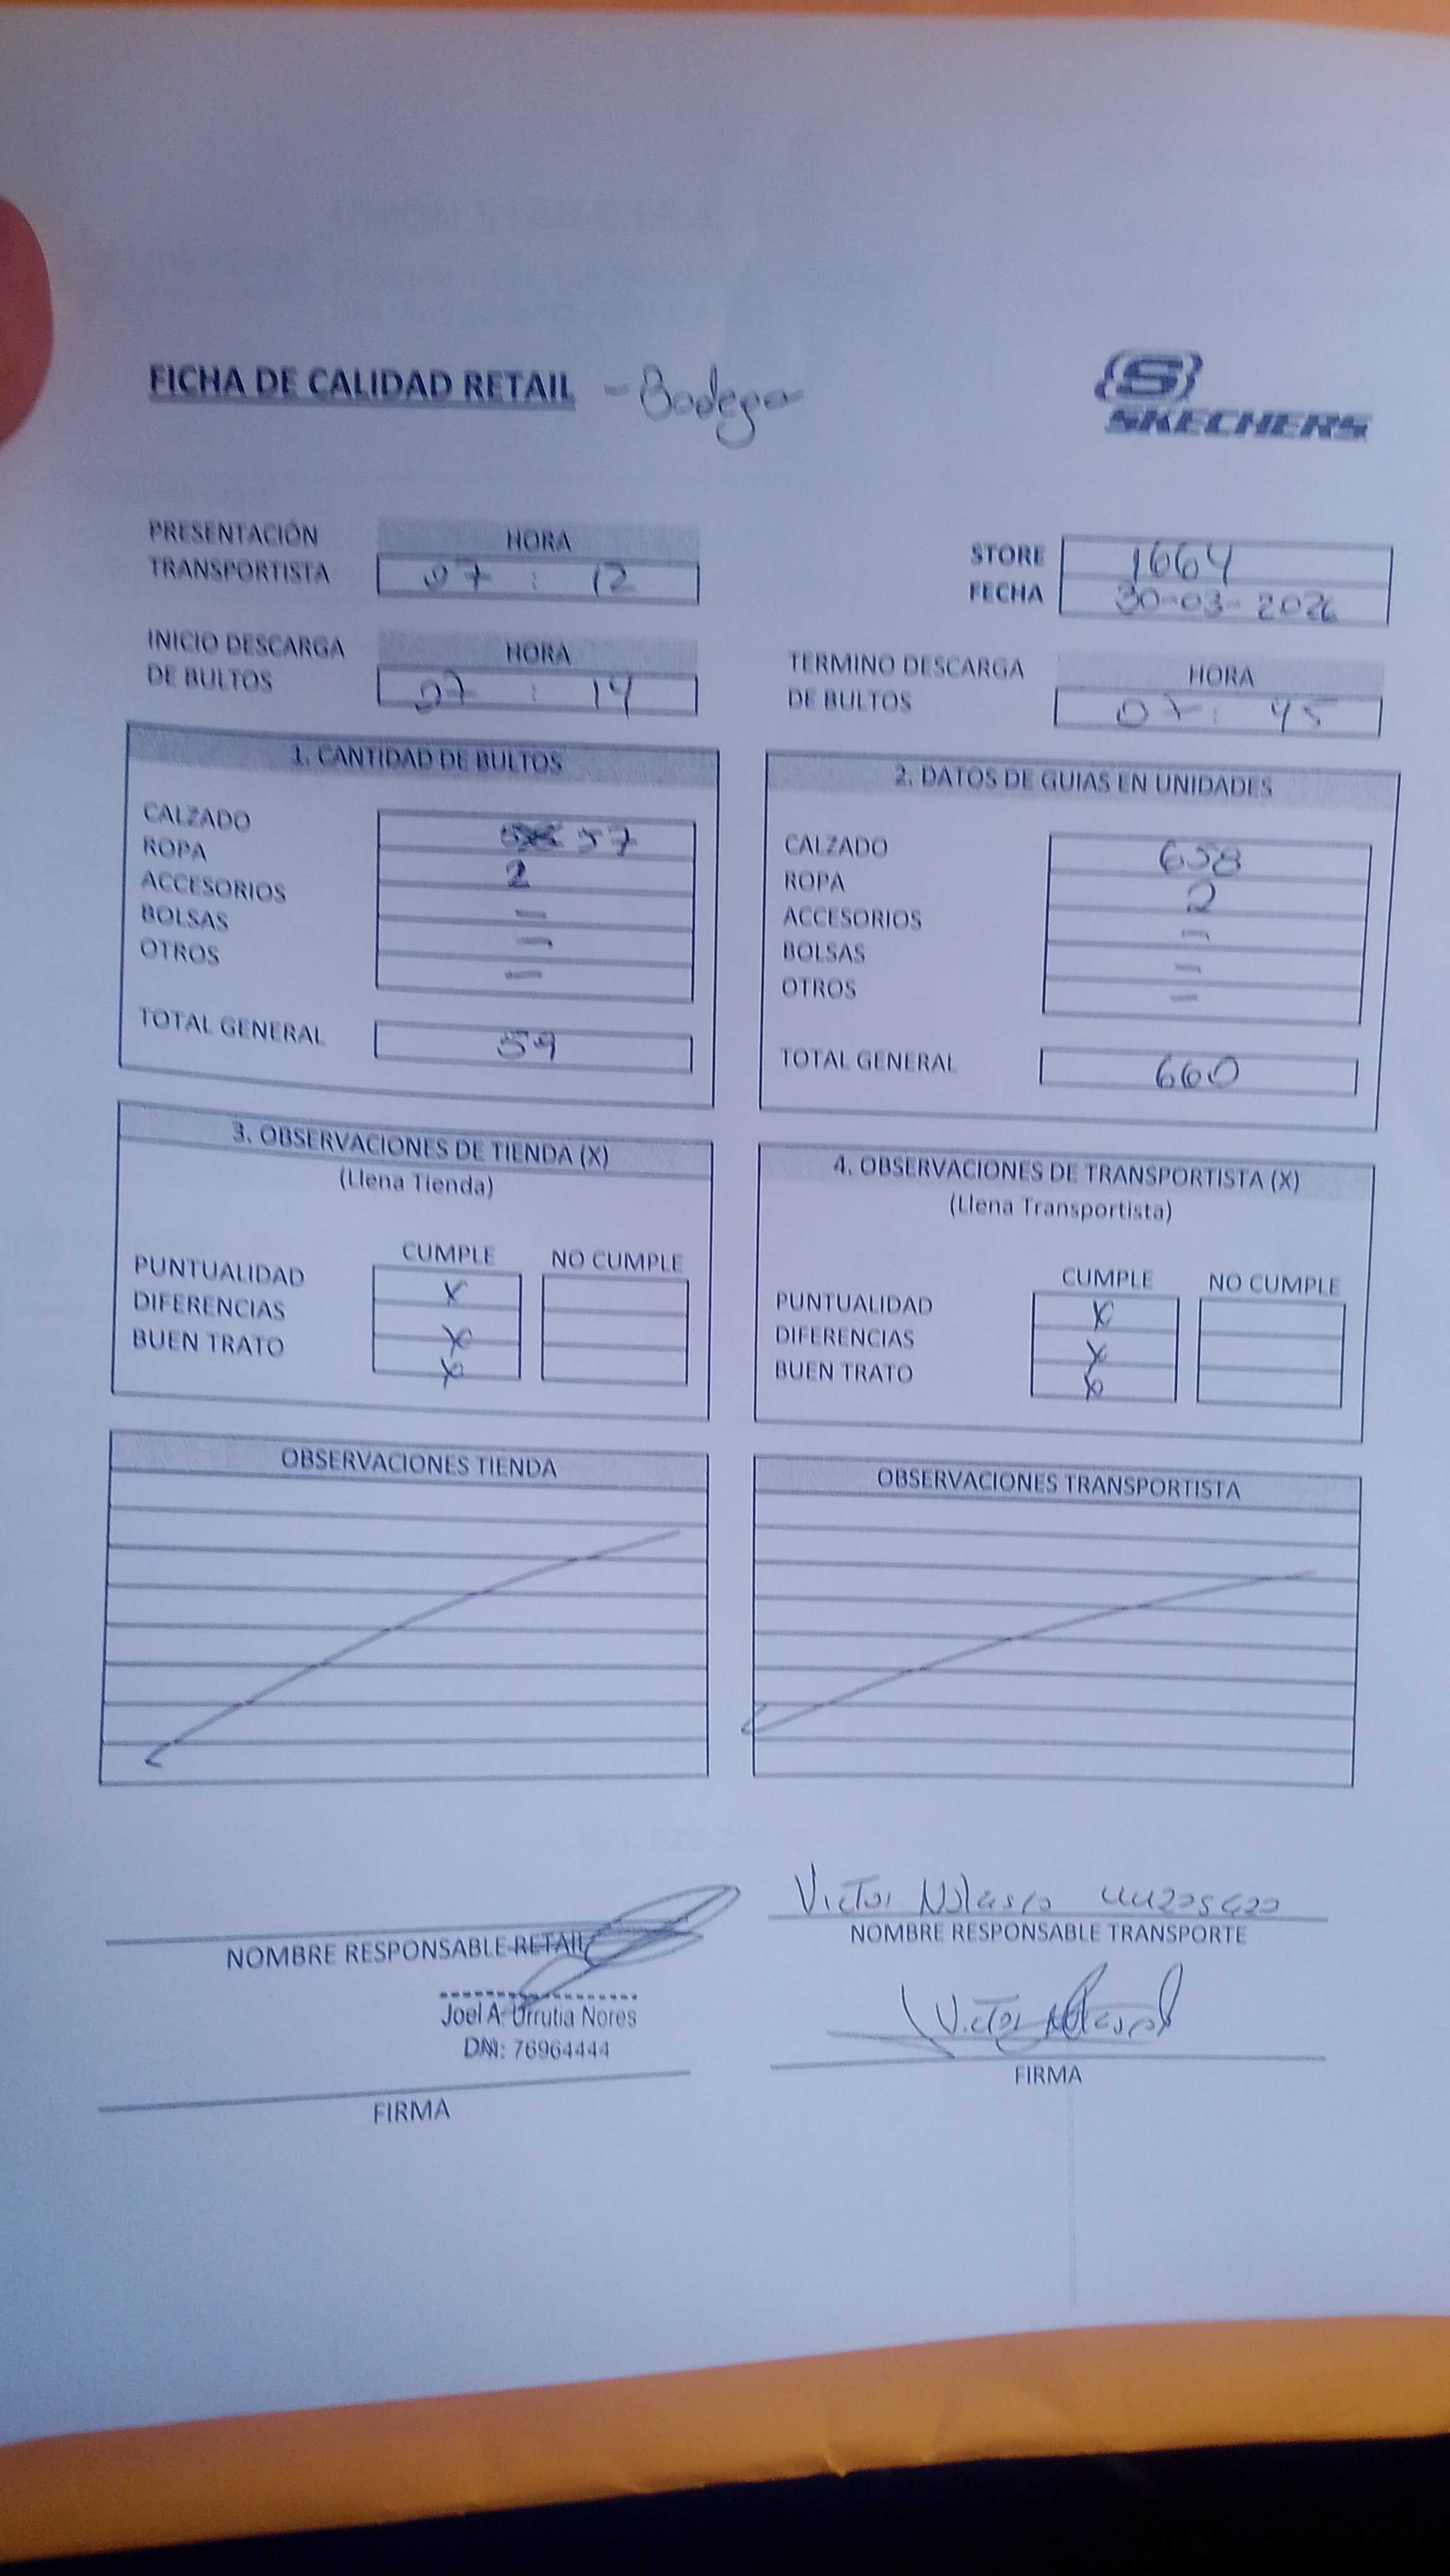 FICHA DE CALIDAD RETAIL - Bodega
SKECHERS
PRESENTACIÓN TRANSPORTISTA HORA 07 : 12
STORE 1664
FECHA 30-03-2026
INICIO DESCARGA DE BULTOS HORA 07 : 14
TERMINO DESCARGA DE BULTOS HORA 07 : 45
1. CANTIDAD DE BULTOS
CALZADO 57
ROPA 2
ACCESORIOS -
BOLSAS -
OTROS -
TOTAL GENERAL 59
2. DATOS DE GUIAS EN UNIDADES
CALZADO 658
ROPA 2
ACCESORIOS -
BOLSAS -
OTROS -
TOTAL GENERAL 660
3. OBSERVACIONES DE TIENDA (X)
(Llena Tienda)
CUMPLE NO CUMPLE
PUNTUALIDAD X
DIFERENCIAS X
BUEN TRATO X
4. OBSERVACIONES DE TRANSPORTISTA (X)
(Llena Transportista)
CUMPLE NO CUMPLE
PUNTUALIDAD X
DIFERENCIAS X
BUEN TRATO X
OBSERVACIONES TIENDA
OBSERVACIONES TRANSPORTISTA
NOMBRE RESPONSABLE RETAIL
Joel A. Urrutia Nores
DNI: 76964444
FIRMA
Victor Nolasco
NOMBRE RESPONSABLE TRANSPORTE
Victor Nolasco
FIRMA